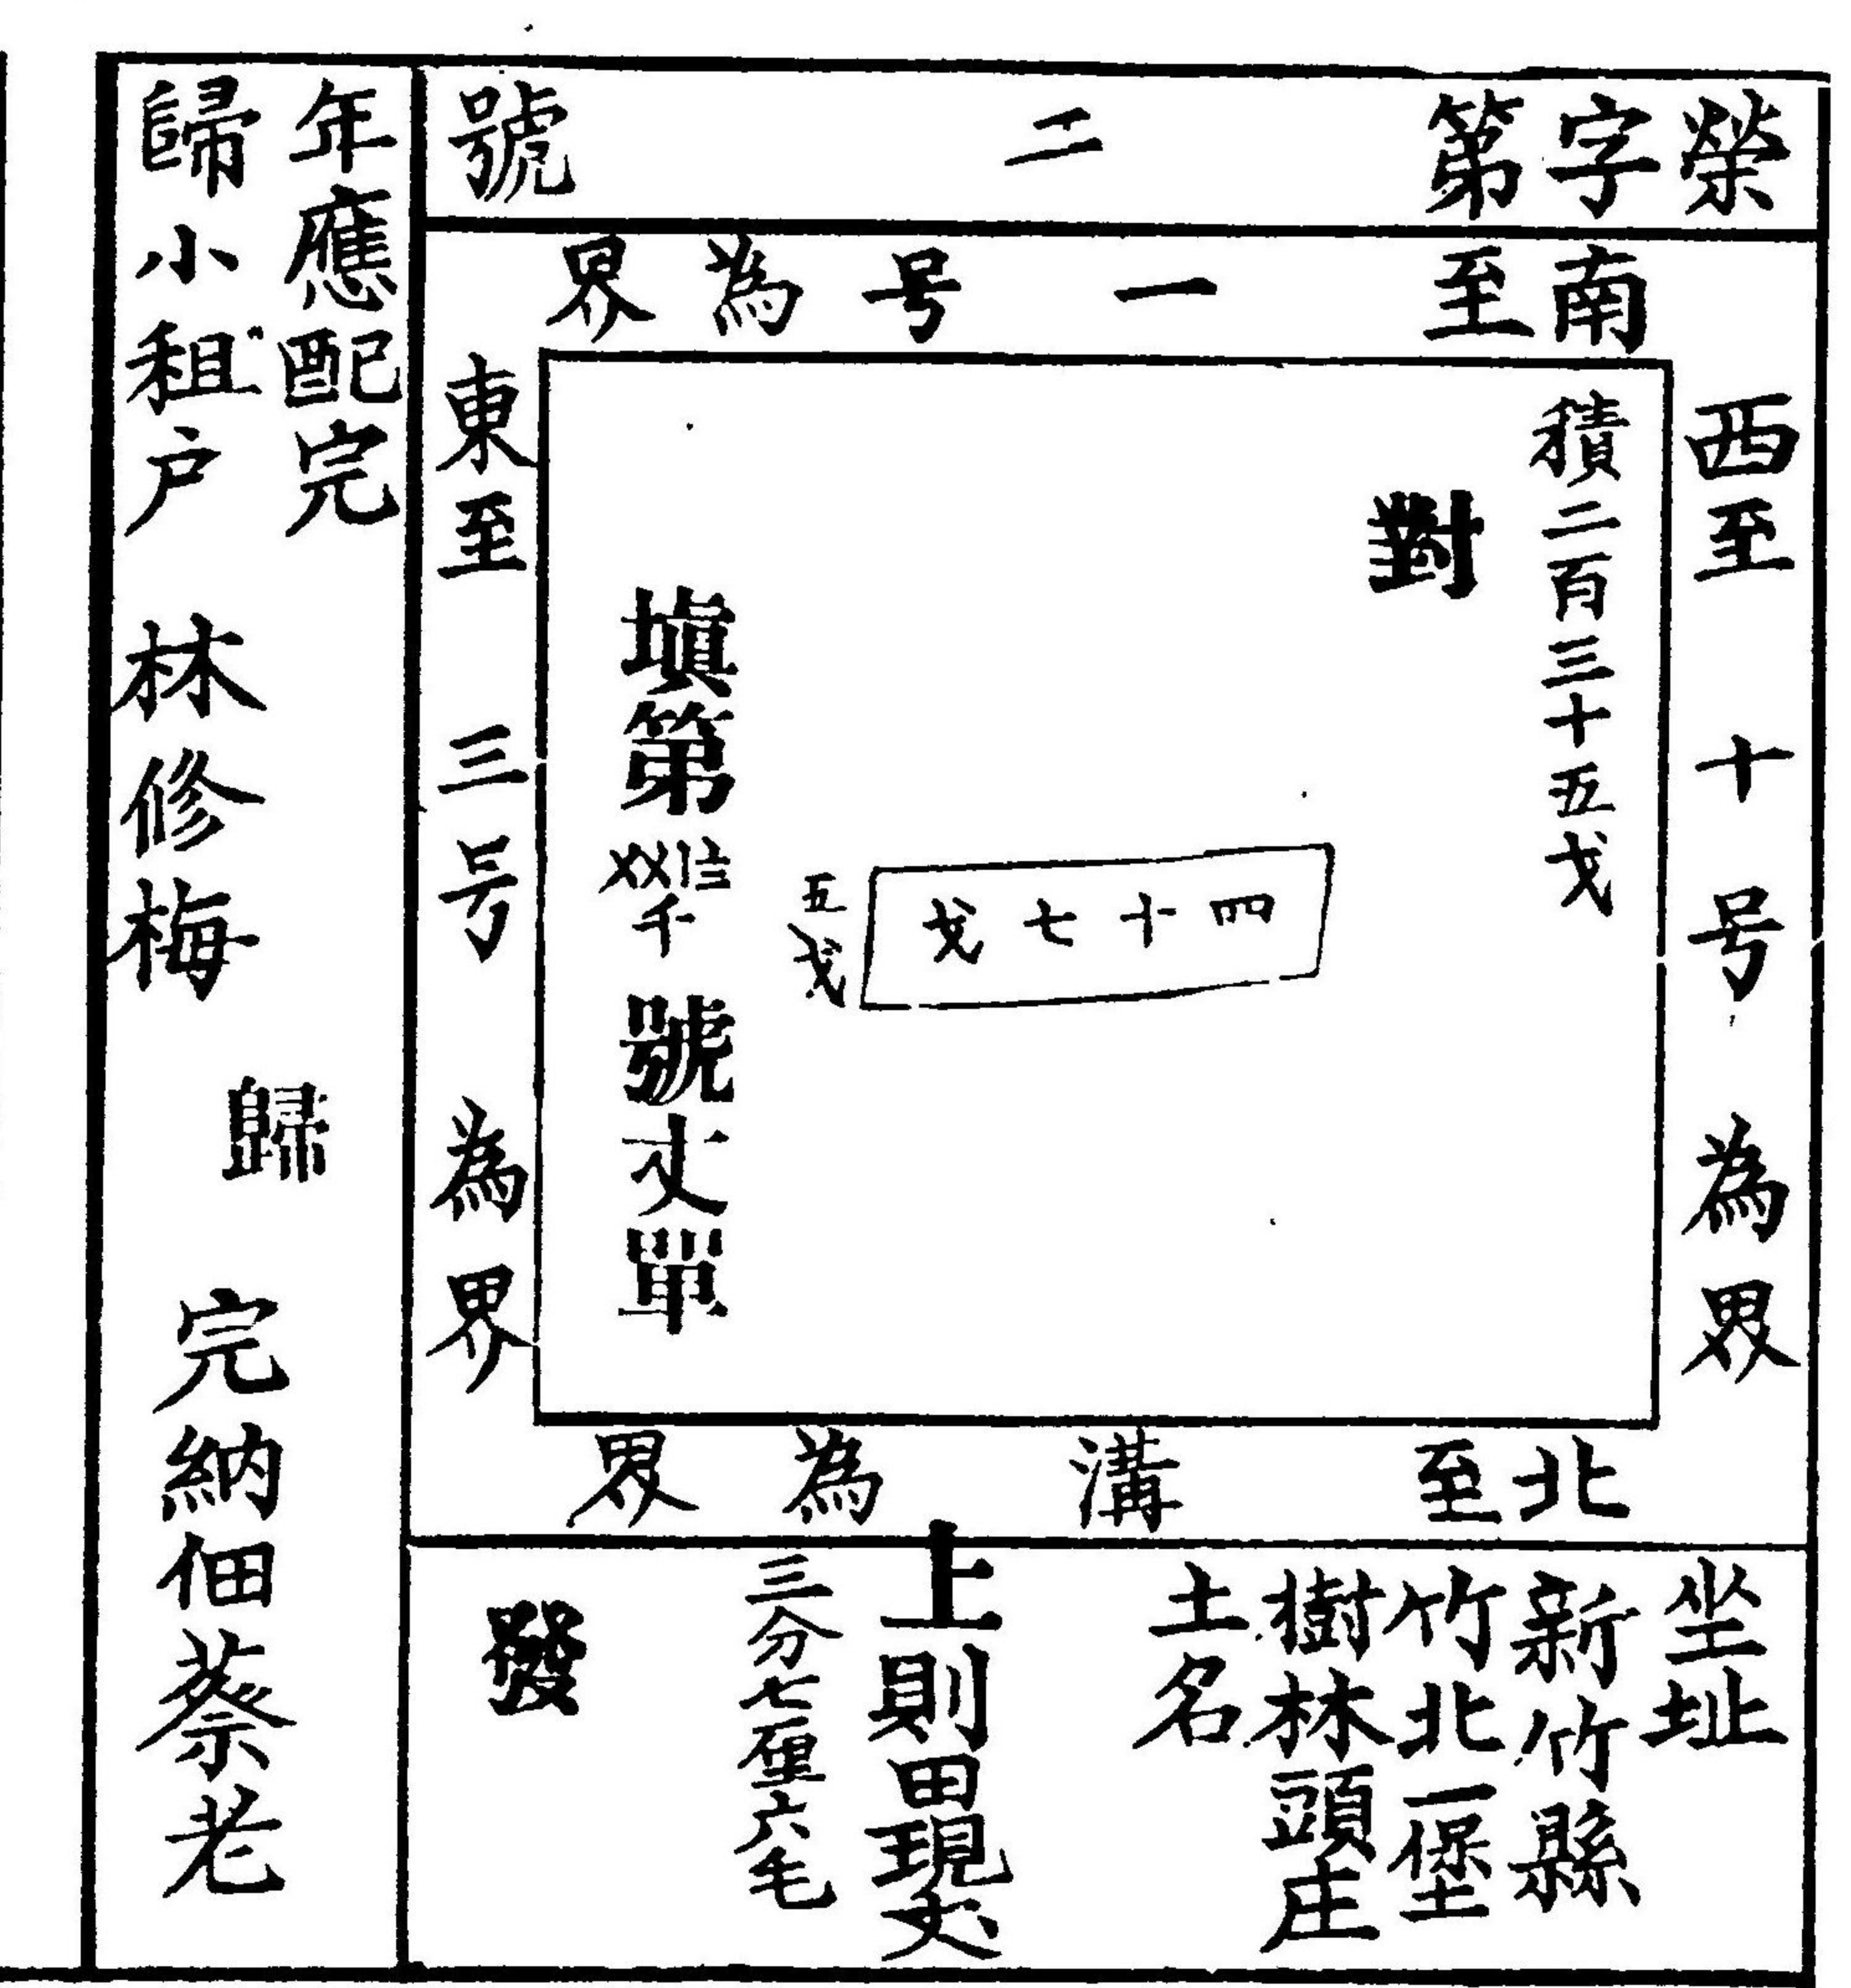 榮字第 二 號
南至 一 号為界
西至 十号 為界
積二百三十五戈
對
四十七戈
五戈
填第
号
號丈單
東至 三号 為界
北至 溝 為界
坐址
新竹縣
竹北一堡
樹林頭庄
土名
上則田現丈
三分七厘六毛
發
年應配完
歸小租户 林修梅
歸
完納佃蔡老